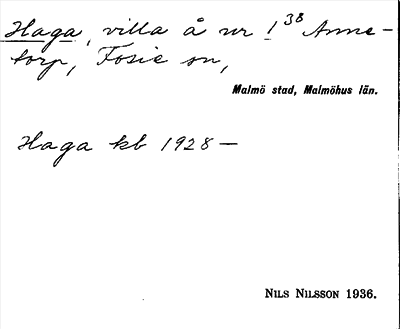 Haga, villa å nr 1³⁸ Anne-
torp, Fosie sn,
Malmö stad, Malmöhus län.
Haga kb 1928 —
NILS NILSSON 1936.